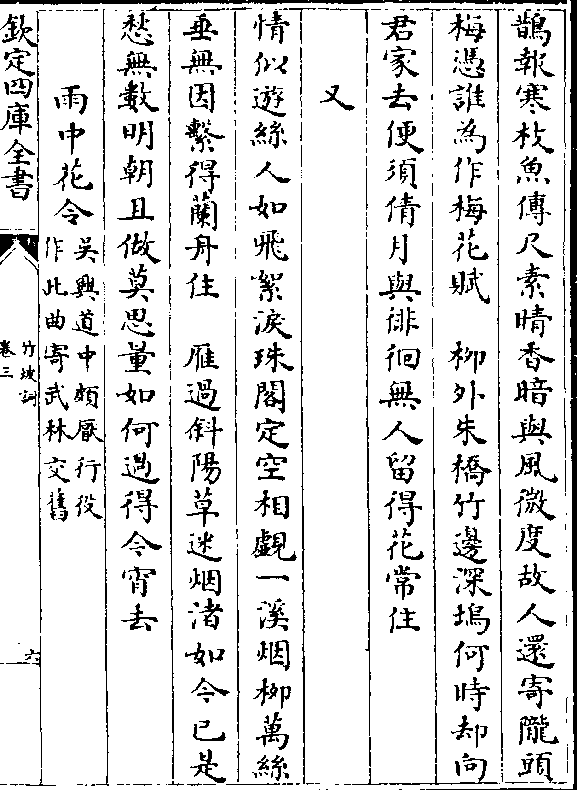 鵲報寒枝魚傳尺素晴香暗與風微度故人還寄隴頭
梅憑誰為作梅花賦　柳外朱橋竹邊深塢何時却向
君家去便須倩月與徘徊無人留得花常住
又
情似遊絲人如飛絮淚珠閣定空相覷一溪烟柳萬絲
垂無因繫得蘭舟住　雁過斜陽草迷烟渚如今已是
愁無數明朝且做莫思量如何過得今宵去
雨中花令
吳興道中頗厭行役
作此曲寄武林交舊
欽定四庫全書
竹坡詞
卷三
六